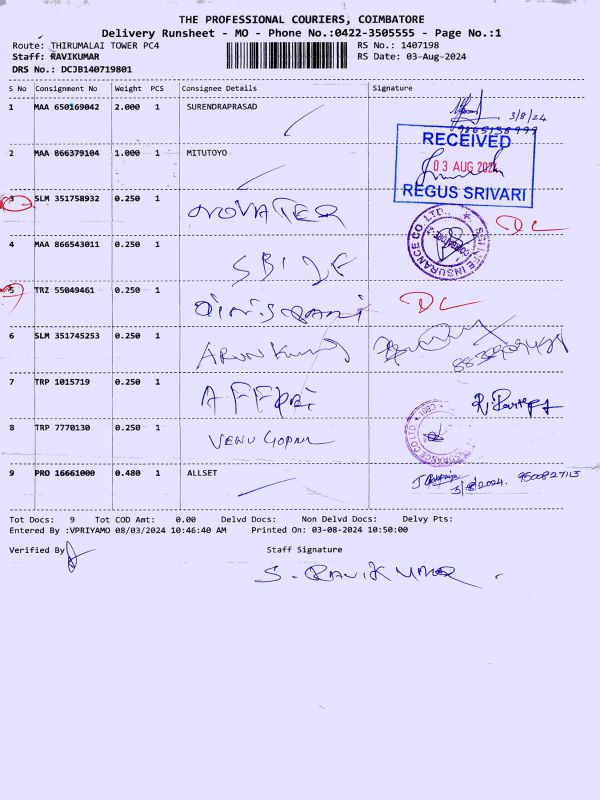 THE PROFESSIONAL COURIERS, COIMBATORE
Delivery Runsheet - MO - Phone No.:0422-3505555 - Page No.:1
Route: THIRUMALAI TOWER PC4 RS No.: 1407198
Staff: RAVIKUMAR RS Date: 03-Aug-2024
DRS No.: DCJB140719801
S No Consignment No Weight PCS Consignee Details Signature
1 MAA 650169042 2.000 1 SURENDRAPRASAD
3/8/24
RECEIVED
2 MAA 866379104 1.000 1 MITUTOYO
03 AUG 2024
REGUS SRIVARI
3 SLM 351758932 0.250 1 NOVATER DC
4 MAA 866543011 0.250 1 SBI
LIFE INSURANCE CO LTD
5 TRZ 55049461 0.250 1 DC
6 SLM 351745253 0.250 1 ARUN Kumar
7 TRP 1015719 0.250 1
8 TRP 7770130 0.250 1 VENU GOPAL
9 PRO 16661000 0.480 1 ALLSET
3/8/2024. 9500827113
Tot Docs: 9 Tot COD Amt: 0.00 Delvd Docs: Non Delvd Docs: Delvy Pts:
Entered By :VPRIYAMO 08/03/2024 10:46:40 AM Printed On: 03-08-2024 10:50:00
Verified By Staff Signature
S. RAVIKUMAR